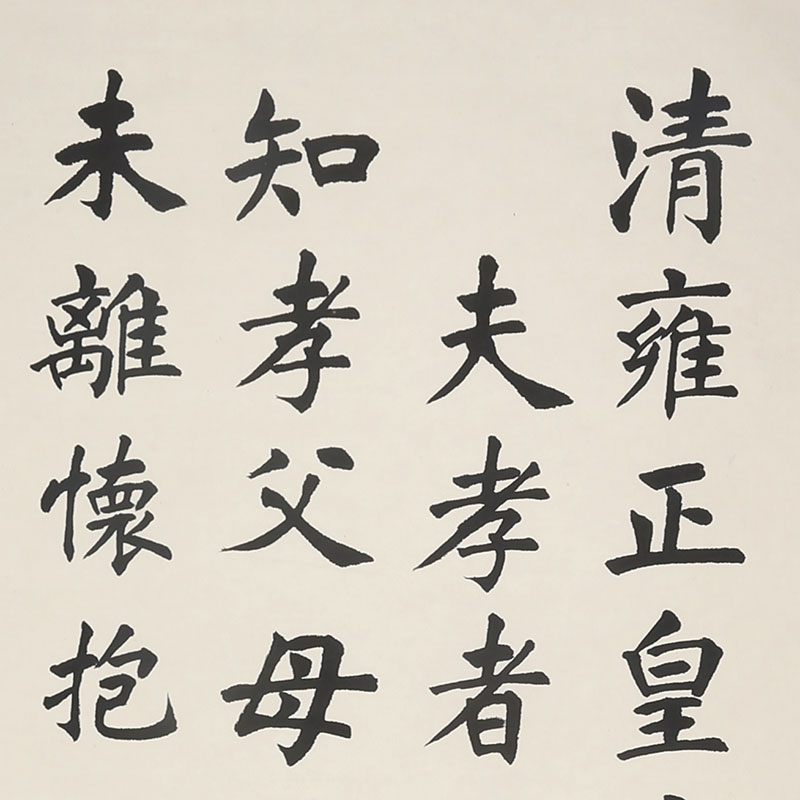 清雍正皇
夫孝者
知孝父母
未離懷抱